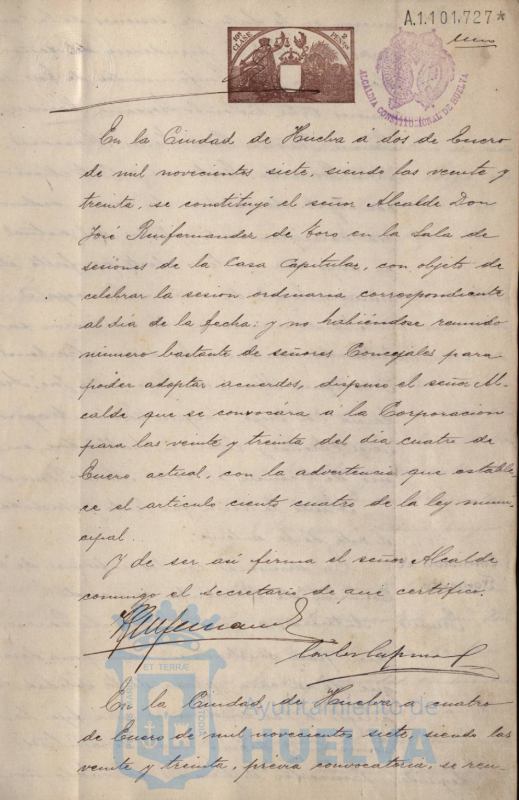 A.1.101.727*
10ª CLASE
2 PESETAS
uno
ALCALDIA CONSTITUCIONAL DE HUELVA
En la Ciudad de Huelva á dos de Enero
de mil novecientos siete, siendo las veinte y
treinta, se constituyó el señor Alcalde Don
José Ruifernandez de Toro en la Sala de
sesiones de la Casa Capitular, con objeto de
celebrar la sesion ordinaria correspondiente
al dia de la fecha: y no habiendose reunido
número bastante de señores Concejales para
poder adoptar acuerdos, dispuso el señor Al-
calde que se convocára a la Corporacion
para las veinte y treinta del dia cuatro de
Enero actual, con la advertencia que estable-
ce el articulo ciento cuatro de la ley muni-
cipal.
Y de ser asi firma el señor Alcalde
conmigo el secretario de que certifico.
En la Ciudad de Huelva a cuatro
de Enero de mil novecientos siete, siendo las
veinte y treinta, prévia convocatoria, se reu-
ET TERRÆ
Ayuntamiento de
HUELVA